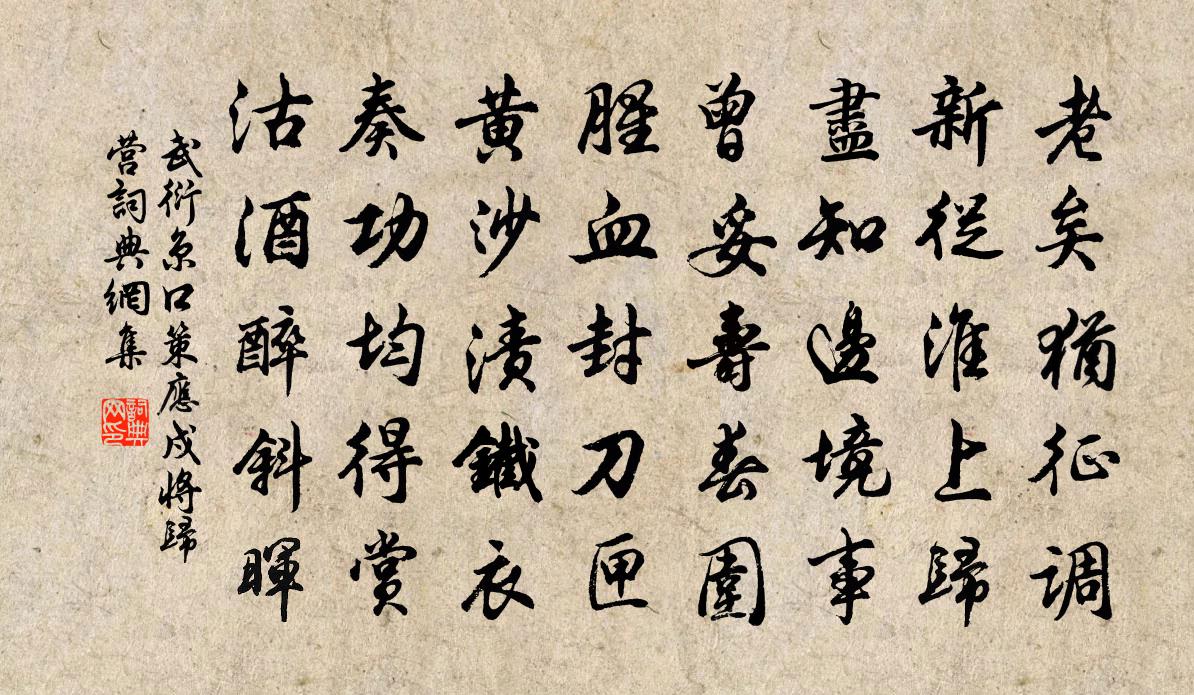 老矣猶征調
新從淮上歸
盡知邊境事
曾妥壽春圍
腥血封刀匣
黃沙漬鐵衣
奏功均得賞
沽酒醉斜暉
武衍京口策應戍將歸
营詞典網集
詞典网印